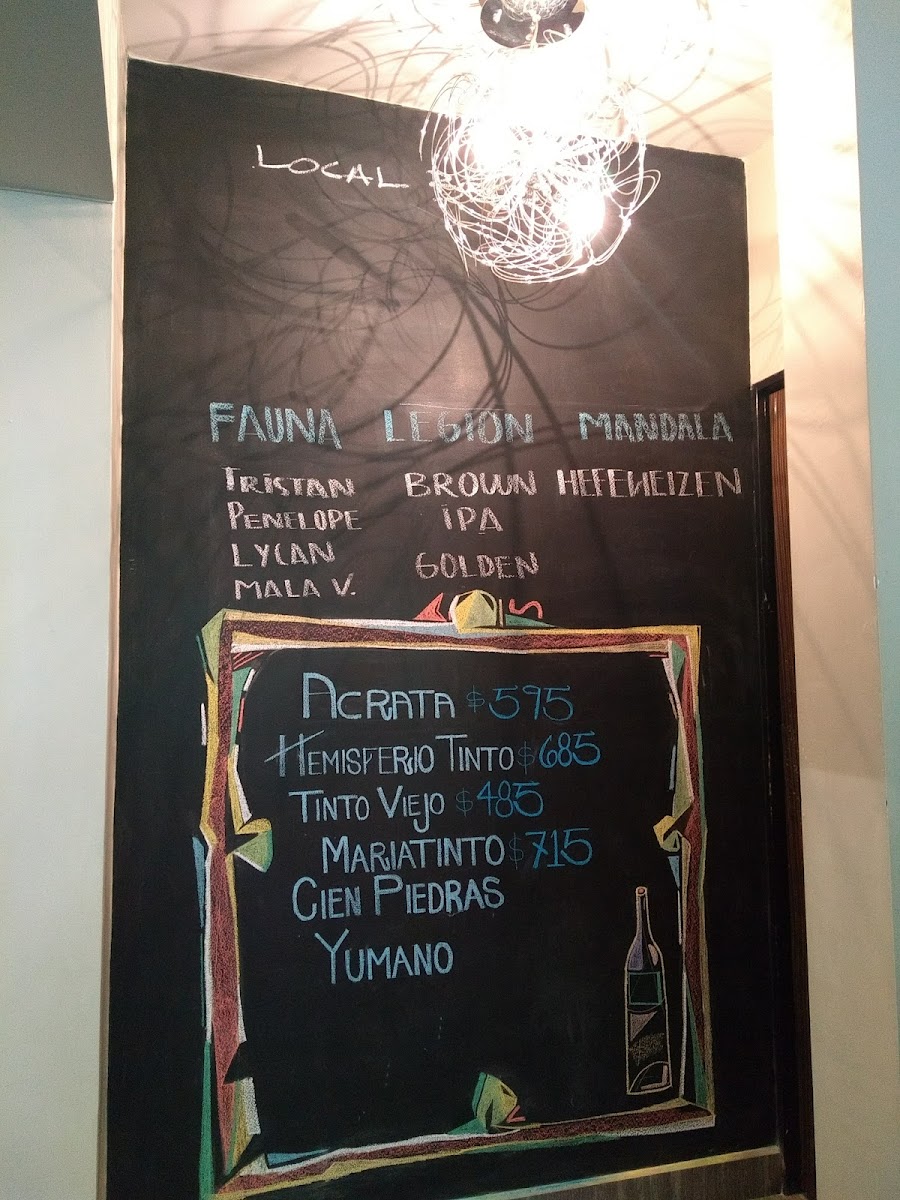 LOCAL
FAUNA LEGION MANDALA
TRISTAN BROWN HEFEWEIZEN
PENELOPE IPA
LYCAN GOLDEN
MALA V.
ACRATA $595
HEMISFERIO TINTO $685
TINTO VIEJO $485
MARIATINTO $715
CIEN PIEDRAS
YUMANO